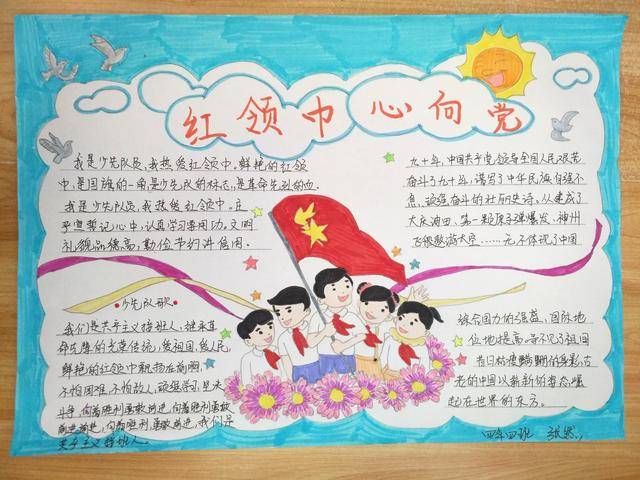 红领巾心向党
我是少先队员,我热爱红领巾。鲜艳的红领
巾,是国旗的一角,是少先队的标志,是革命先烈的血
我是少先队员,我热爱红领巾。庄
严宣誓记心中,认真学习要用功。文明
礼貌品德高,勤俭节约讲信用。
少先队歌
我们是共产主义接班人,继承革
命先辈的光荣传统,爱祖国,爱人民,
鲜艳的红领巾飘扬在前胸
不怕困难,不怕敌人,顽强学习,坚决
斗争,向着胜利勇敢前进,向着胜利勇敢
前进前进,向着胜利勇敢前进,我们是
共产主义接班人。
九十年,中国共产党领导全国人民艰苦
奋斗了九十年,谱写了中华民族自强不
息、顽强奋斗的壮丽史诗,从建成了
大庆油田、第一颗原子弹爆发、神州
飞船遨游太空……无不体现了中国
综合国力的强盛、国际地
位地提高。
昔日
老的中国以崭新的姿态崛
起在世界的东方。
四年四班 张